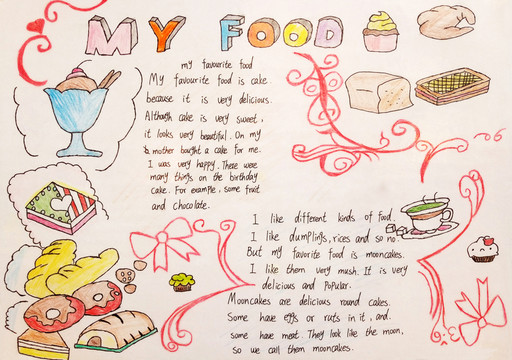 MY FOOD
my favourite food
My favourite food is cake
because it is very delicious.
Although cake is very sweet,
it looks very beautiful. On my
mother bought a cake for me.
I was very happy. There were
many things on the birthday
cake. For example, some fruit
and chocolate.
I like different kinds of food.
I like dumplings, rices and so no.
But my favorite food is mooncakes.
I like them very mush. It is very
delicious and Popular.
Mooncakes are delicious round cakes.
Some have eggs or nuts in it, and
some have meat. They look like the moon,
so we call them mooncakes.